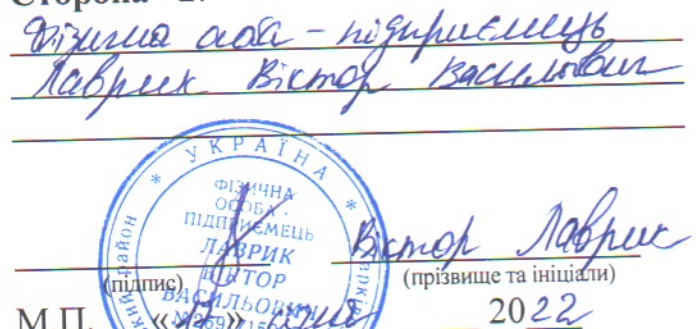 Сторона
Фізична особа – підприємець
Лаврик Віктор Васильович
УКРАЇНА
ФІЗИЧНА
ОСОБА
ПІДПРИЄМЕЦЬ
ЛАВРИК
ВІКТОР
ВАСИЛЬОВИЧ
район
Віктор Лаврик
(підпис) (прізвище та ініціали)
М.П. « » 2022